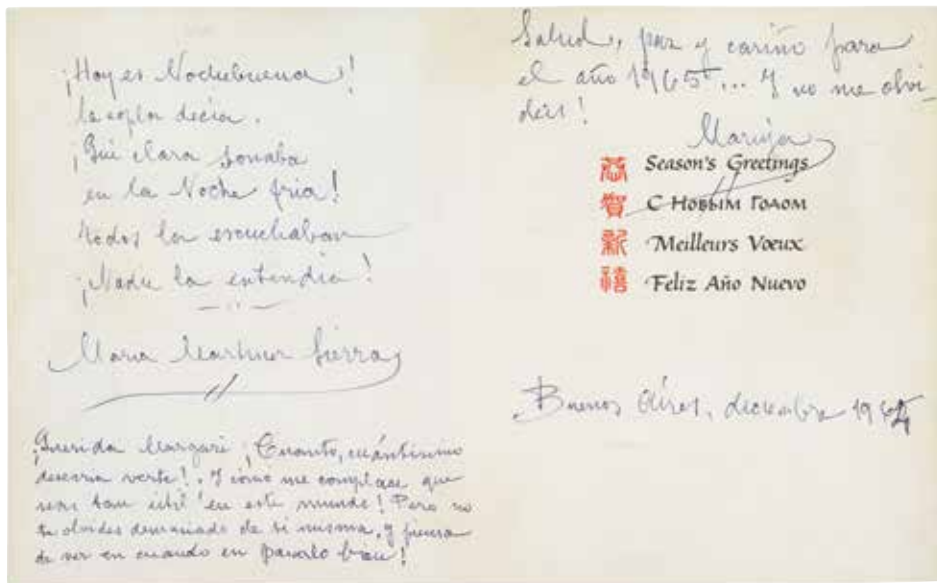 ¡Hoy es Nochebuena!
la copla decía.
¡Qué clara sonaba
en la Noche fria!
todos la escuchaban
¡Nadie la entendía!
María Martínez Sierra
¡Querida Margari ¡Cuanto, cuántisimo
desearía verte!. Y cómo me complace que
seas tan útil en este mundo! Pero no
te olvides demasiado de ti misma, y piensa
de vez en cuando en pasarlo bien!
Salud, paz y cariño para
el año 1965... Y no me olvi-
deis!
Maruja
恭 Season's Greetings
賀 С Новым Годом
新 Meilleurs Vœux
禧 Feliz Año Nuevo
Buenos Aires, diciembre 1964